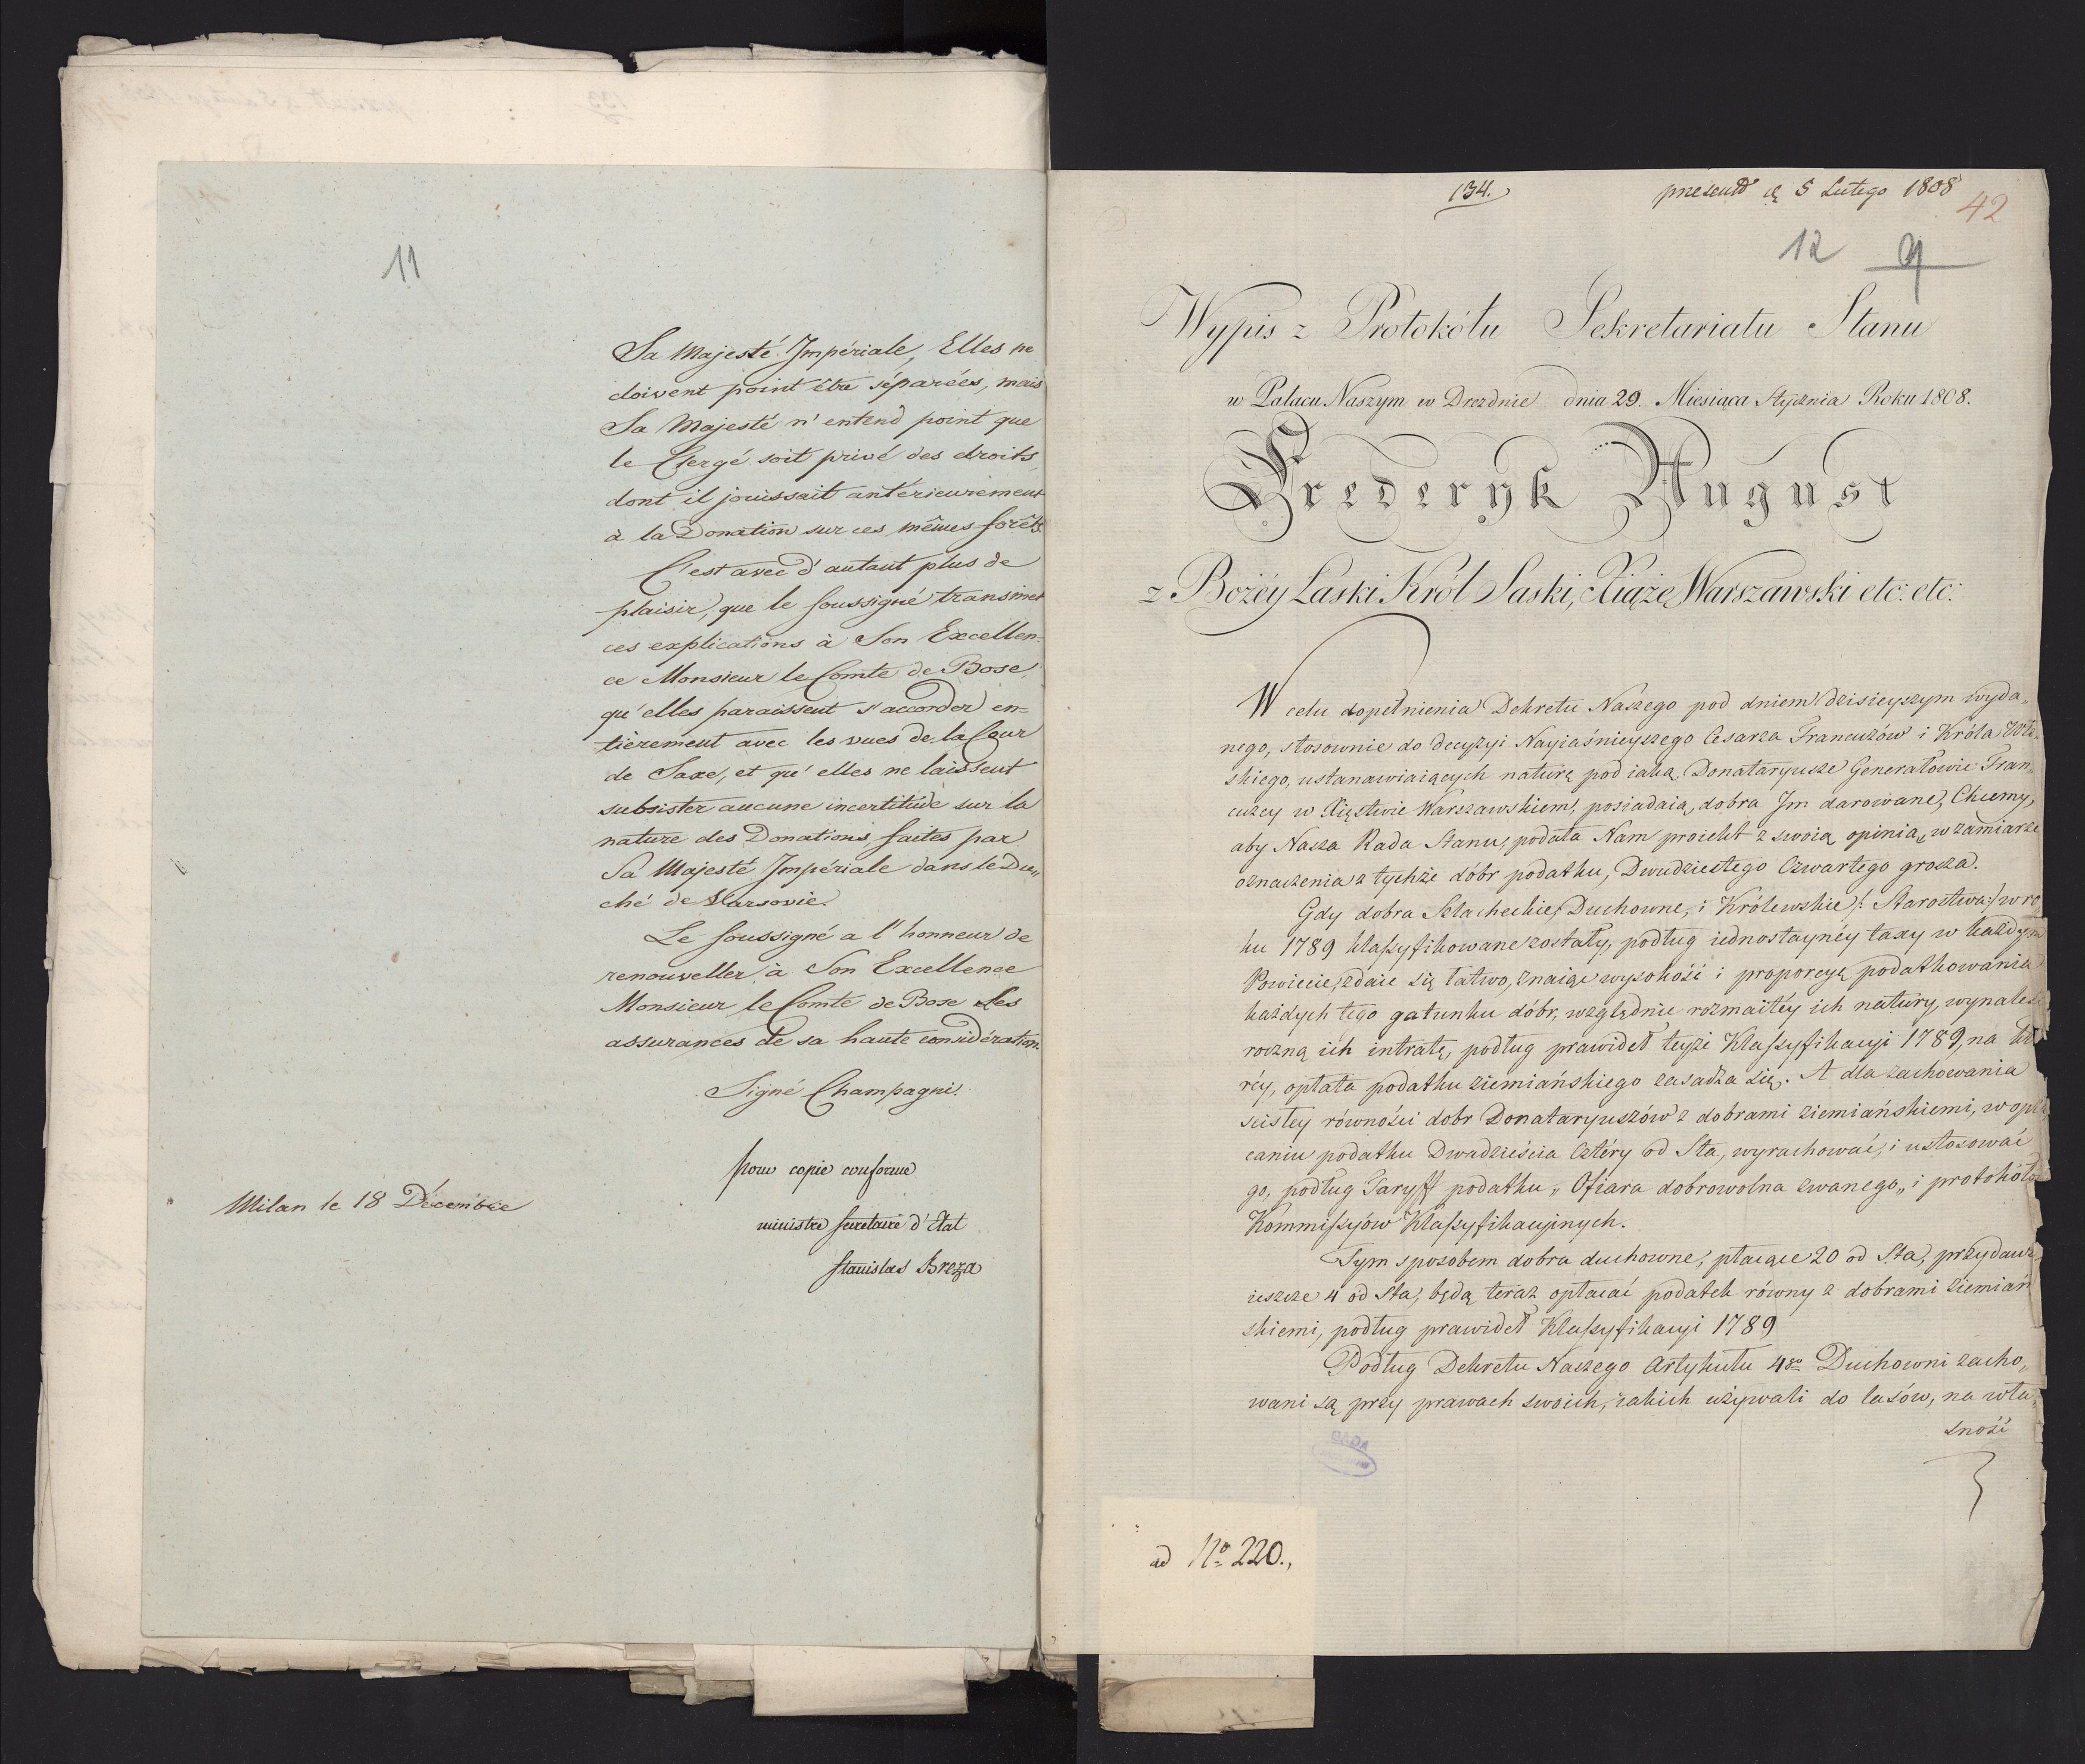 11
Sa Majesté Impériale, Elles ne
doivent point être séparées, mais
Sa Majesté n'entend point que
le Clergé soit privé des droits,
dont il jouissait antérieurement
à la Donation sur ces mêmes forêts.
C'est avec d'autant plus de
plaisir, que le soussigné transmet
ces explications à Son Excellen=
ce Monsieur le Comte de Bose,
qu'elles paraissent s'accorder en=
tièrement avec les vues de la Cour
de Saxe, et qu'elles ne laissent
subsister aucune incertitude sur la
nature des Donations, faites par
Sa Majesté Impériale dans le Du„
ché de Varsovie.
Le soussigné a l'honneur de
renouveller à Son Excellence
Monsieur le Comte de Bose Les
assurances de sa haute considération.
Signé Champagni.
pour copie conforme
Milan le 18 Décembre
ministre secretaire d'Etat
Stanislas Breza
134.
5 Lutego 1808
42
12 9
Wypis z Protokółu Sekretariatu Stanu
w Pałacu Naszym w Dreznie dnia 29. Miesiąca Stycznia Roku 1808.
Frederyk August
z Bożéy Łaski Król Saski, Xiąże Warszawski etc: etc:
W celu dopełnienia Dekretu Naszego pod dniem dzisieyszym wyda„
nego, stosownie do decyzyi Nayiaśnieyszego Cesarza Francuzów i Króla Wło„
skiego, ustanawiaiących naturę pod iaką Donataryusze Generałowie Fran„
cuzcy w Xięstwie Warszawskiem, posiadaią dobra Im darowane, Chcemy,
aby Nasza Rada Stanu, podała Nam proiekt z swoią opinią, w zamiarze
oznaczenia z tychże dóbr podatku, Dwudziestego Czwartego grosza.
Gdy dobra Szlacheckie, Duchowne, i Królewskie /: Starostwa:/ w ro„
ku 1789 klassyfikowane zostały, podług iednostaynéy taxy w każdym
Powiecie, zdaie się łatwo, znaiąc wysokość i proporcyą podatkowania
każdych tego gatunku dóbr, względnie rozmaitéy ich natury, wynaleść
roczną ich intratę, podług prawideł teyże Klassyfikacyi 1789, na któ
réy, opłata podatku ziemiańskiego zasadza się. A dla zachowania
scisłey równości dobr Donataryuszów z dobrami ziemiańskiemi, w opła
caniu podatku Dwadzieścia Cztéry od Sta, wyrachować, i ustosować
go, podług Taryff podatku „Ofiara dobrowolna zwanego„ i protokółów
Kommissyów Klassyfikacyinych.
Tym sposobem dobra duchowne, płacące 20 od Sta, przydawszy
ieszcze 4 od Sta, będą teraz opłacać podatek równy z dobrami ziemiań
skiemi, podług prawideł Klassyfikacyi 1789
Podług Dekretu Naszego Artykułu 4go Duchowni zacho„
wani są przy prawach swoich, iakich używali do lasów, na wła„
sność
ad No 220.,